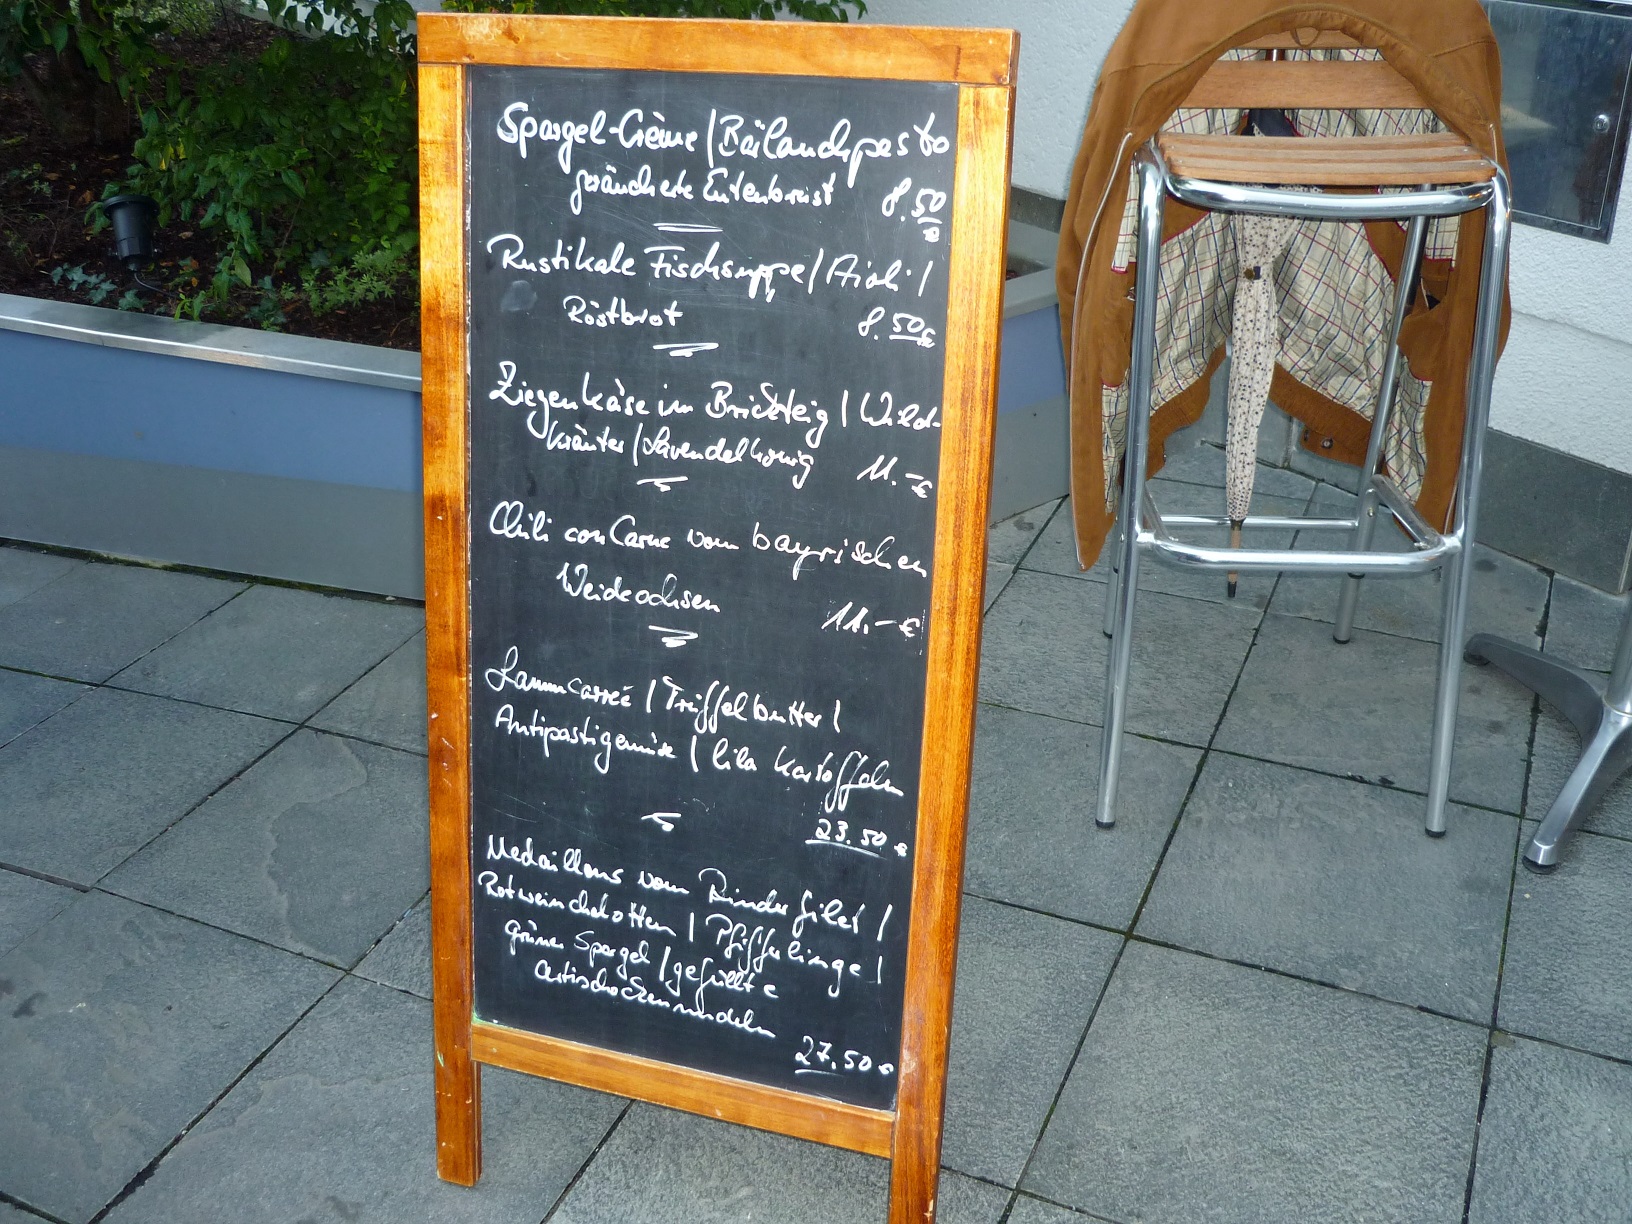 Spargel-Crème / Bärlauchpesto
geräucherte Entenbrust 8.50
€
Rustikale Fischsuppe / Aioli /
Röstbrot 8.50 €
Ziegenkäse im Brickteig / Wild-
kräuter / Lavendelhonig 11.-€
Chili con Carne vom bayrischen
Weideochsen 11.-€
Lammcarrée / Trüffelbutter /
Antipastigemüse / lila Kartoffeln
23.50 €
Medaillons vom Rinderfilet /
Rotweinschalotten / Pfifferlinge /
grüner Spargel / gefüllte
Artischockennudeln
27.50 €